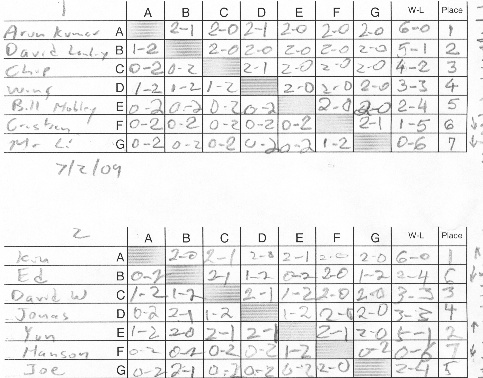 1
A B C D E F G W-L Place
Arun Kumar A 2-1 2-0 2-1 2-0 2-0 2-0 6-0 1
David B 1-2 2-0 2-0 2-0 2-0 2-0 5-1 2
Chip C 0-2 0-2 2-1 2-0 2-0 2-0 4-2 3
Wing D 1-2 1-2 1-2 2-0 2-0 2-0 3-3 4
Bill Mobley E 0-2 0-2 0-2 0-2 2-0 2-0 2-4 5
F 0-2 0-2 0-2 0-2 0-2 2-1 1-5 6 ↓
Mr Li G 0-2 0-2 0-2 0-2 0-2 1-2 0-6 7 ↓
7/2/09
2
A B C D E F G W-L Place
Kin A 2-0 2-1 2-0 2-1 2-0 2-0 6-0 1 ↑
Ed B 0-2 2-1 1-2 0-2 2-0 1-2 2-4 ↓
David W C 1-2 1-2 2-1 1-2 2-0 2-0 3-3 3
Jonas D 0-2 2-1 1-2 1-2 2-0 2-0 3-3 4
Yun E 1-2 2-0 2-1 2-1 2-1 2-0 5-1 2 ↑
Hanson F 0-2 0-2 0-2 0-2 1-2 0-2 0-6 7 ↓
Joe G 0-2 2-1 0-2 0-2 0-2 2-0 2-4 5